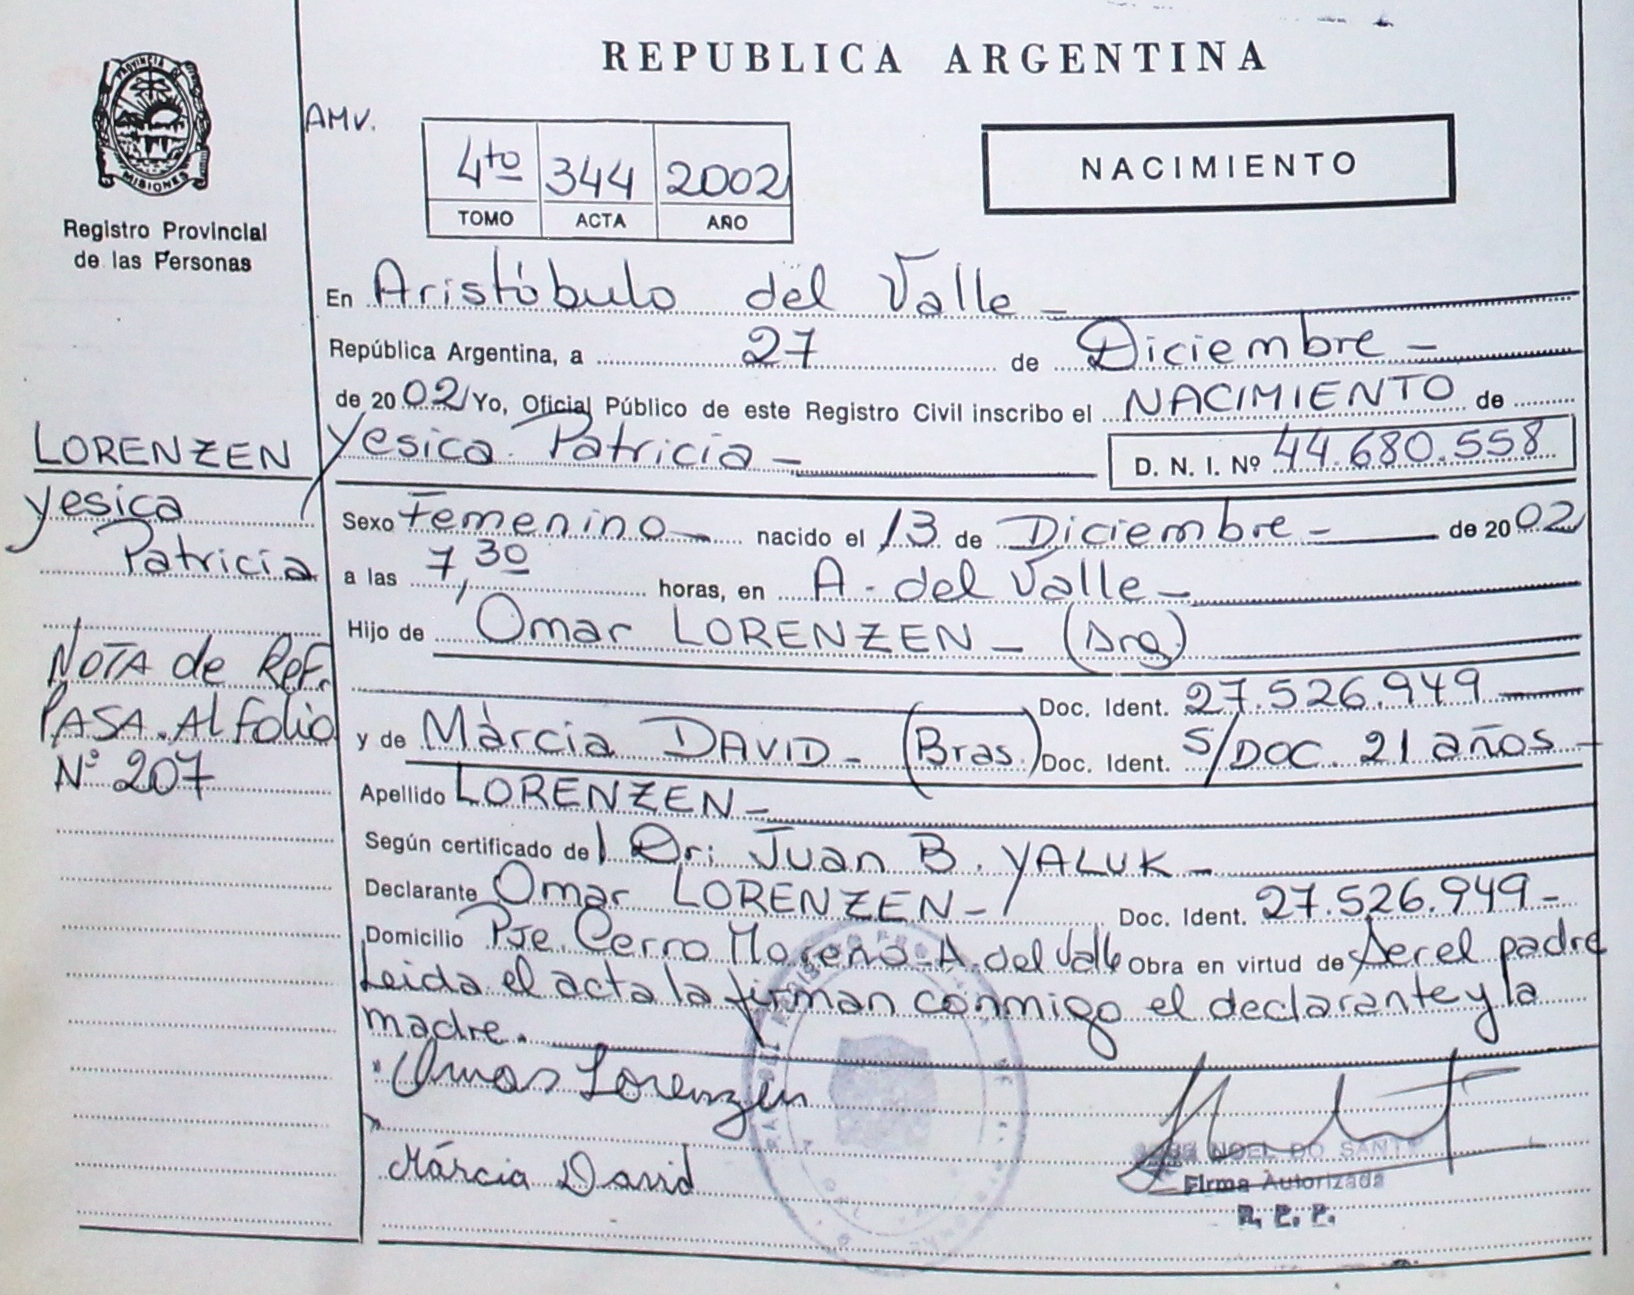 REPUBLICA ARGENTINA
PROVINCIA DE
MISIONES
Registro Provincial
de las Personas
AMV.
4to 344 2002
TOMO ACTA AÑO
NACIMIENTO
En Aristóbulo del Valle
República Argentina, a 27 de Diciembre
de 2002 Yo, Oficial Público de este Registro Civil inscribo el NACIMIENTO de
Yesica Patricia D. N. I. Nº 44.680.558
Sexo Femenino nacido el 13 de Diciembre de 2002
a las 7,30 horas, en A. del Valle
Hijo de Omar LORENZEN (Arg)
Doc. Ident. 27.526.949
y de Márcia DAVID (Bras.) Doc. Ident. S/DOC. 21 años
Apellido LORENZEN
Según certificado del Dr: Juan B. YALUK
Declarante Omar LORENZEN Doc. Ident. 27.526.949
Domicilio Pje. Cerro Moreno - A. del Valle Obra en virtud de Ser el padre
Leida el acta la firman conmigo el declarante y la
madre.
Omar Lorenzen
Márcia David
NOEL DO SANT
Firma Autorizada
R. P. P.
LORENZEN
Yesica
Patricia
NOTA de REF.
PASA Al folio
Nº 207